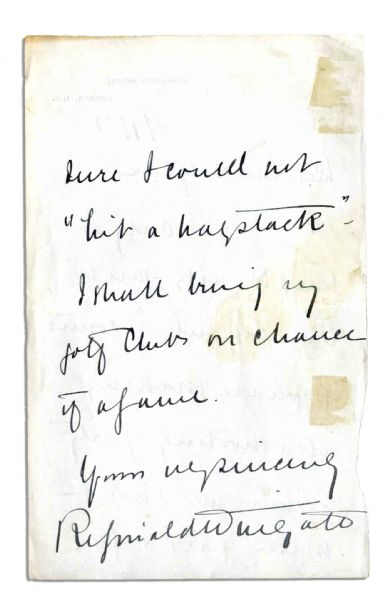 sure I could not
"hit a haystack" -
I shall bring my
golf clubs on chance
of a game.
Yours very sincerely
Reginald Wingate